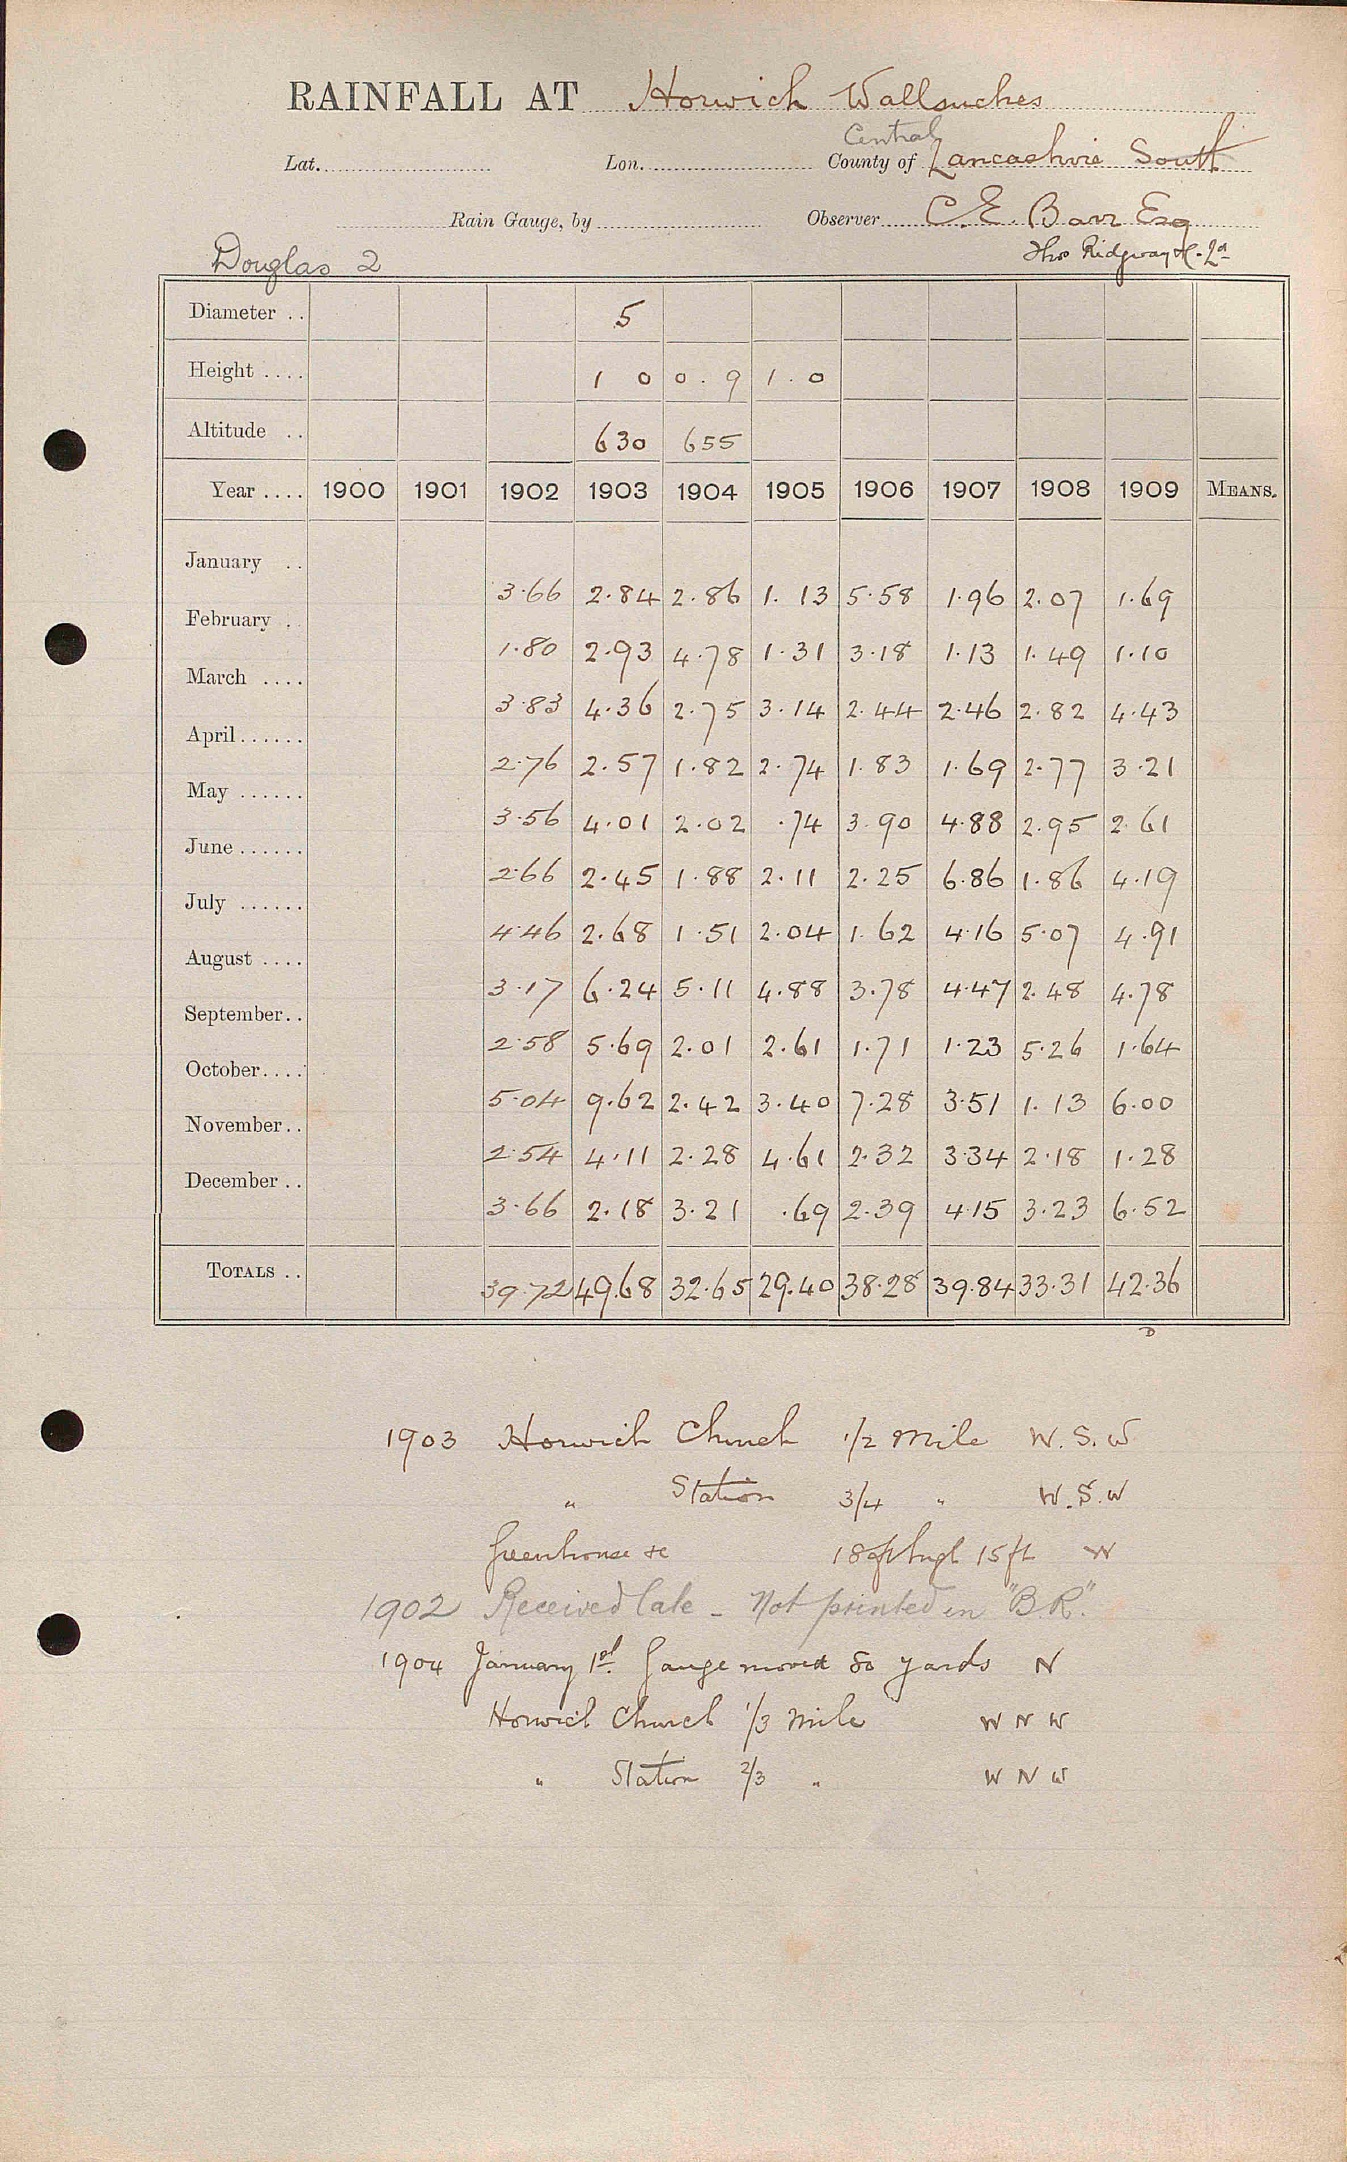 RAINFALL AT Horwich Wallsuches
Central
Lat. Lon. County of Lancashire South
Rain Gauge, by Observer C. E. Barr Esq
Douglas 2 Thos Ridgway
Diameter .. 5
Height .... 1 0 0.9 1.0
Altitude .. 630 655
Year .... 1900 1901 1902 1903 1904 1905 1906 1907 1908 1909 MEANS.
January .. 3.66 2.84 2.86 1.13 5.58 1.96 2.07 1.69
February . 1.80 2.93 4.78 1.31 3.18 1.13 1.49 1.10
March .... 3.83 4.36 2.75 3.14 2.44 2.46 2.82 4.43
April...... 2.76 2.57 1.82 2.74 1.83 1.69 2.77 3.21
May ...... 3.56 4.01 2.02 .74 3.90 4.88 2.95 2.61
June ...... 2.66 2.45 1.88 2.11 2.25 6.86 1.86 4.19
July ...... 4.46 2.68 1.51 2.04 1.62 4.16 5.07 4.91
August .... 3.17 6.24 5.11 4.88 3.78 4.47 2.48 4.78
September.. 2.58 5.69 2.01 2.61 1.71 1.23 5.26 1.64
October.... 5.04 9.62 2.42 3.40 7.28 3.51 1.13 6.00
November.. 2.54 4.11 2.28 4.61 2.32 3.34 2.18 1.28
December .. 3.66 2.18 3.21 .69 2.39 4.15 3.23 6.52
TOTALS .. 39.72 49.68 32.65 29.40 38.28 39.84 33.31 42.36
D
1903 Horwich Church 1/2 Mile W.S.W
" Station 3/4 " W.S.W
Greenhouse &c 18 ft high 15 ft W
1902 Received late - Not printed in "B.R."
1904 January 1st. Gauge moved 80 yards N
Horwich Church 1/3 Mile W N W
" Station 2/3 " W N W